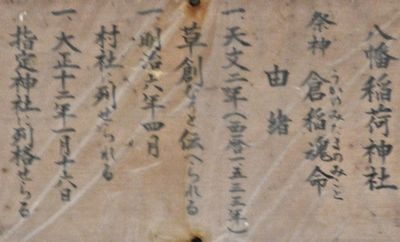 八幡稲荷神社
祭神 倉稲魂命
うかのみたまのみこと
由緒
一、天文二年(西暦一五三三年)
草創なりと伝へられる
一、明治六年四月
村社に列せられる
一、大正十二年一月十六日
指定神社に列格せらる